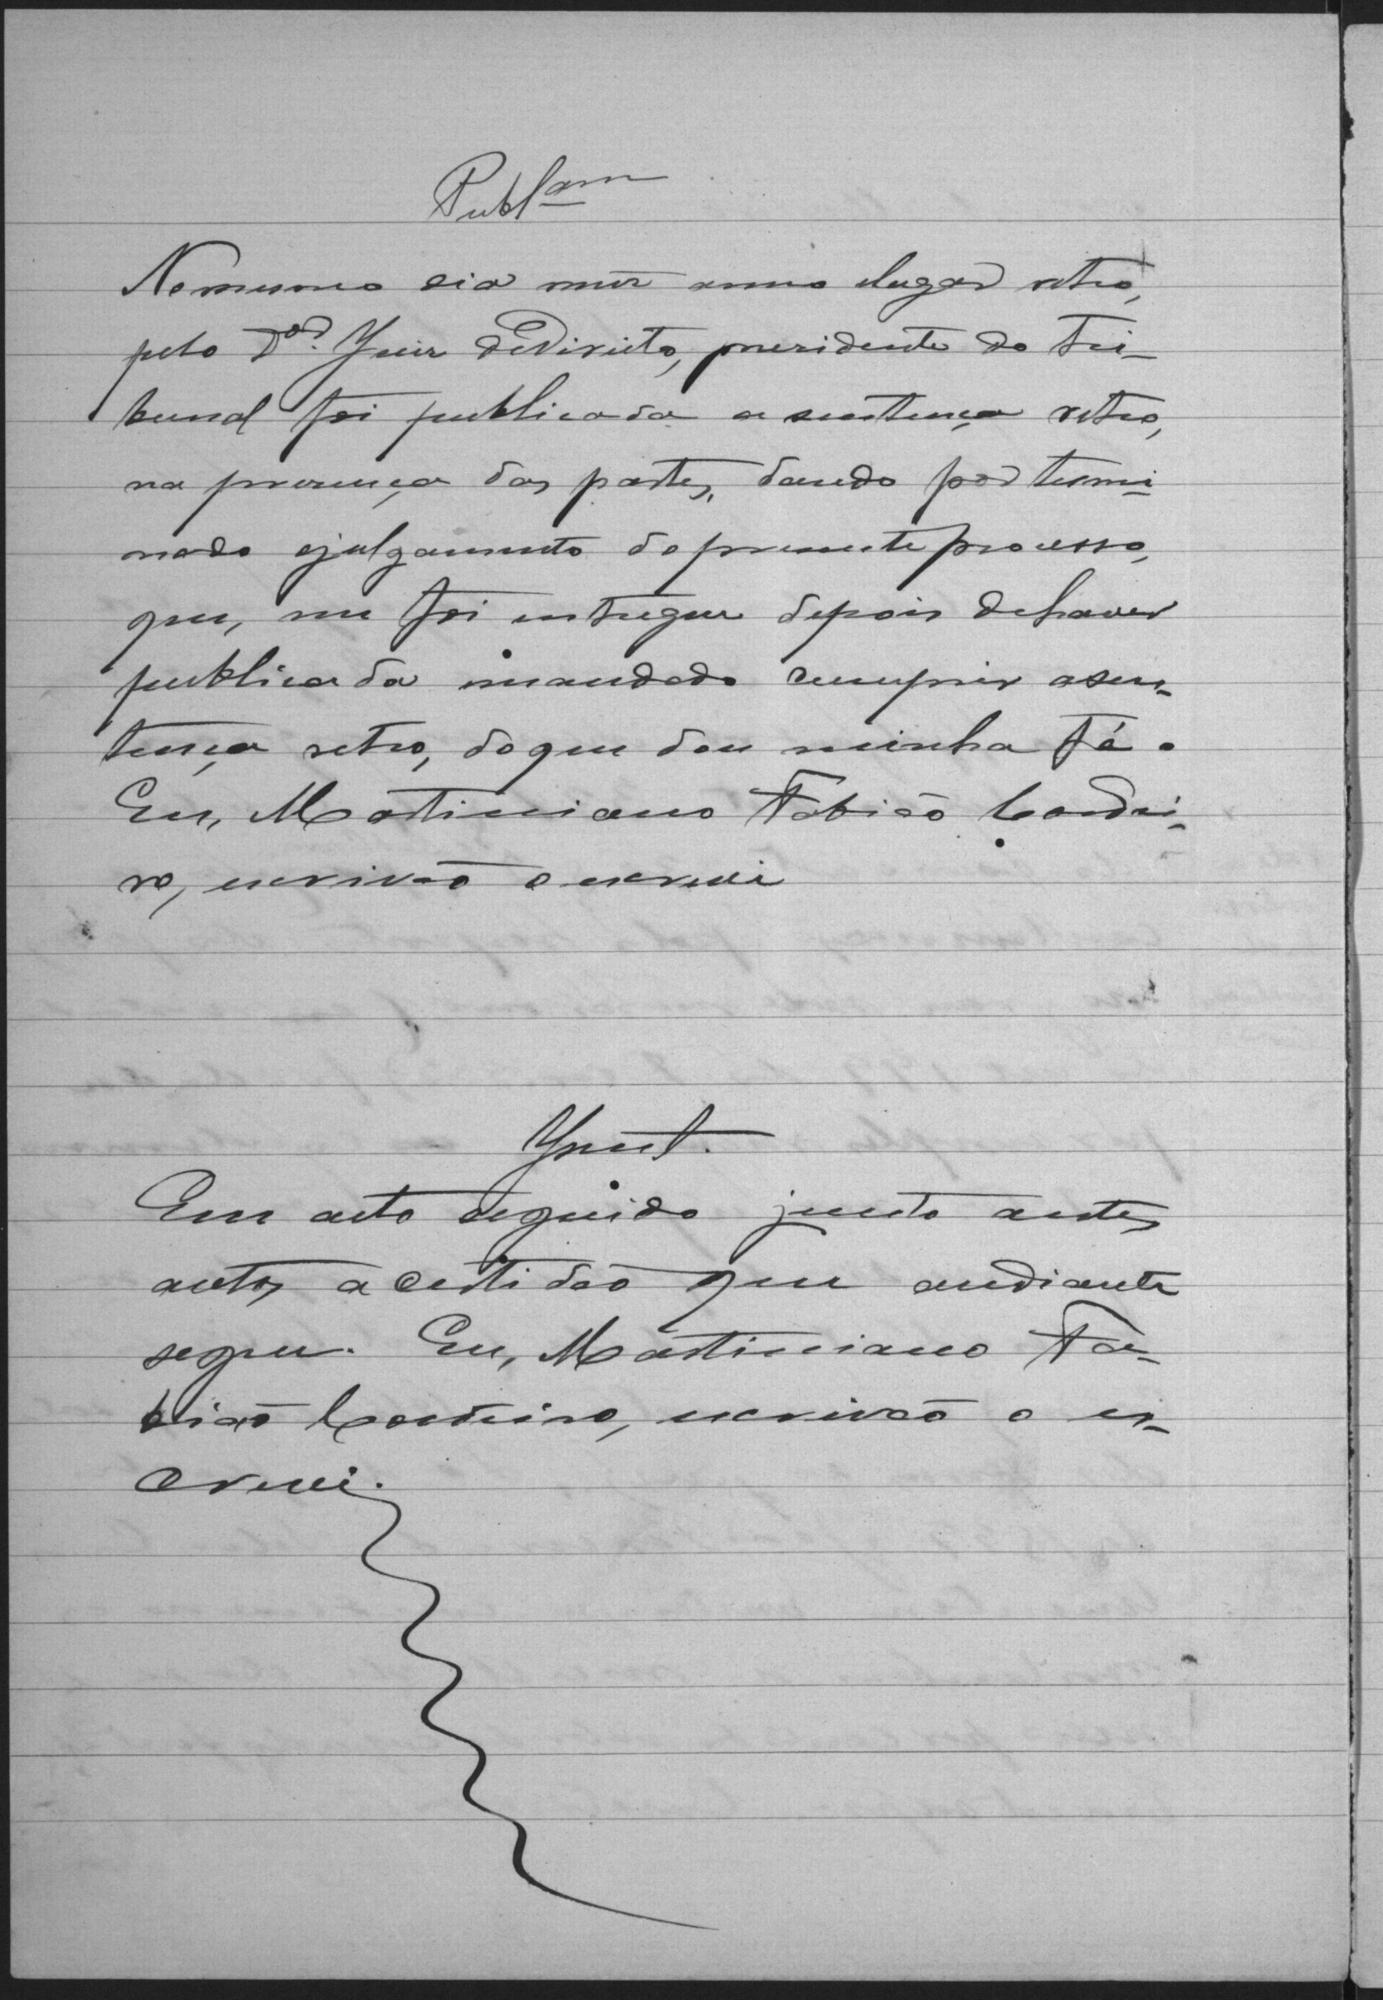 Publ.am
No mesmo dia mez anno e lugar retro,
pelo Dor. Juiz de Direito, presidente do Tri-
bunal foi publicada a sentença retro,
na presença das partes, dando por termi-
nado o julgamento do presente processo,
que, me foi entregue depois de haver
publicada mandado cumprir a sen-
tença retro, do que dou minha fé.
Eu, Martiniano Fabião Cordei-
ro, escrivão o escrevi
Em acto seguido junto a estes
autos a certidão que andiante
segue. Eu, Martiniano Fa-
bião Cordeiro, escrivão o es-
crevi.